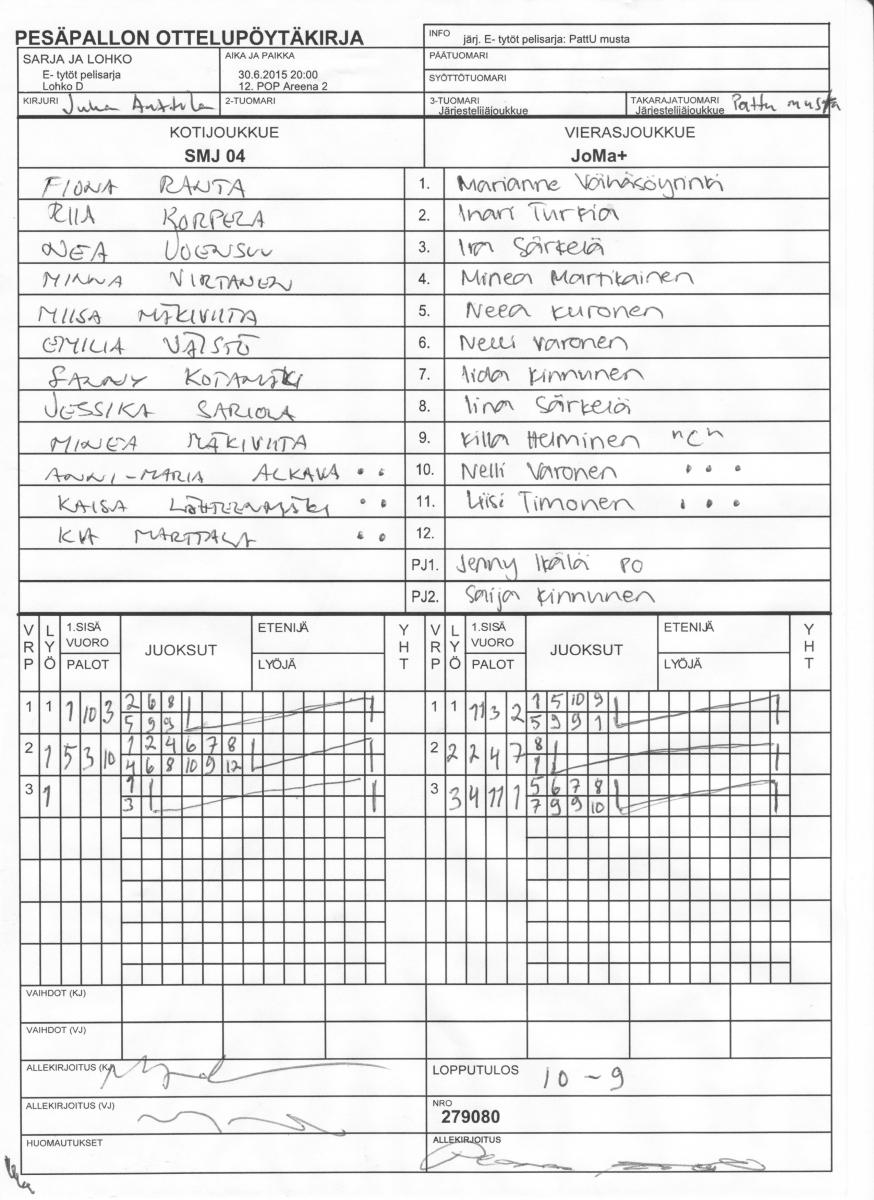 PESÄPALLON OTTELUPÖYTÄKIRJA
INFO järj. E- tytöt pelisarja: PattU musta
SARJA JA LOHKO
E- tytöt pelisarja
Lohko D
AIKA JA PAIKKA
30.6.2015 20:00
12. POP Areena 2
PÄÄTUOMARI
SYÖTTÖTUOMARI
KIRJURI Juha Anttila
2-TUOMARI
3-TUOMARI
Järjestelijäjoukkue
TAKARAJATUOMARI
Järjestelijäjoukkue Pattu musta
KOTIJOUKKUE
SMJ 04
VIERASJOUKKUE
JoMa+
FIONA RANTA 1. Marianne Vähäsöyrinki
RIIA KORPELA 2. Inari Turkia
NEA JOENSUU 3. Ira Särkelä
MINNA VIRTANEN 4. Minea Martikainen
MIISA MÄKIVIITA 5. Neea Kuronen
EMILIA VÄISTÖ 6. Nelli Varonen
FANNY KOTAMÄKI 7. Iida Kinnunen
JESSIKA SARIOLA 8. Iina Särkelä
MINEA MÄKIVIITA 9. Killa Helminen
ANNI-MARIA ALKAVA 10. Nelli Varonen
KAISA 11. Liisi Timonen
KIA MARTTALA 12.
PJ1. Jenny Ikälä PO
PJ2. Saija Kinnunen
VRP LYÖ 1.SISÄ VUORO PALOT JUOKSUT ETENIJÄ LYÖJÄ YHT VRP LYÖ 1.SISÄ VUORO PALOT JUOKSUT ETENIJÄ LYÖJÄ YHT
1 1 1 10 3 2 6 8 1 1 11 3 2 1 5 10 9
5 9 9 5 9 9 1
2 1 5 3 10 1 2 4 6 7 8 2 2 2 4 7 8
4 6 8 10 9 12 1
3 1 1 3 3 4 11 1 5 6 7 8
3 7 9 9 10
VAIHDOT (KJ)
VAIHDOT (VJ)
ALLEKIRJOITUS (KJ)
LOPPUTULOS 10 - 9
ALLEKIRJOITUS (VJ)
NRO
279080
HUOMAUTUKSET
ALLEKIRJOITUS